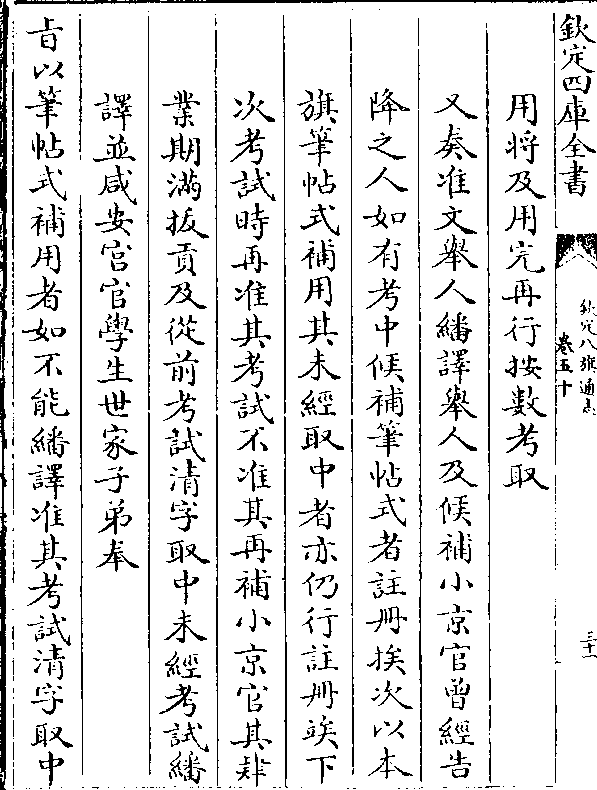 欽定四庫全書
欽定八旗通志
卷五十
三十一
用將及用完再行按數考取
又奏准文舉人繙譯舉人及候補小京官曾經告
降之人如有考中候補筆帖式者註冊挨次以本
旗筆帖式補用其未經取中者亦仍行註冊竢下
次考試時再准其考試不准其再補小京官其肄
業期滿拔貢及從前考試清字取中未經考試繙
譯並咸安宮官學生世家子弟奉
旨以筆帖式補用者如不能繙譯准其考試清字取中